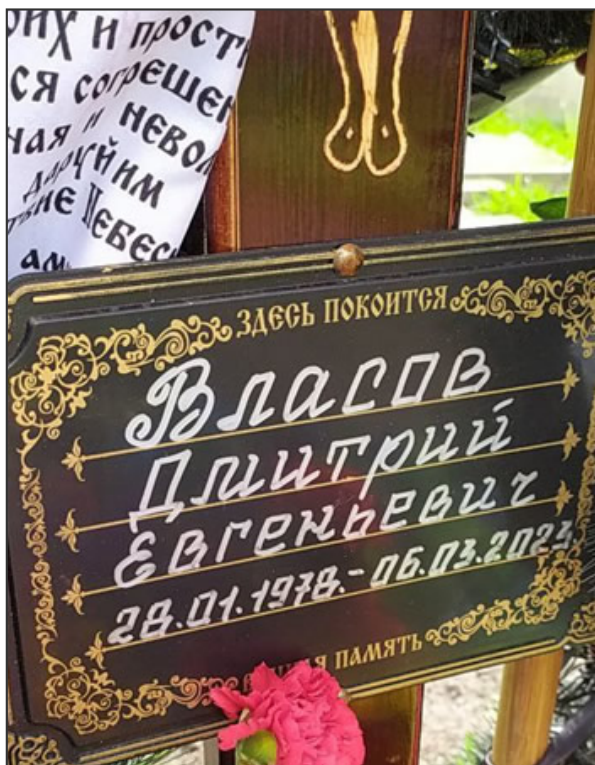 оих и прост
ся согрешен
ная и невол
даруй им
твие Небес
ам
ЗДЕСЬ ПОКОИТСЯ
Власов
Дмитрий
Евгеньевич
28.01.1978.-06.03.2023
ПАМЯТЬ